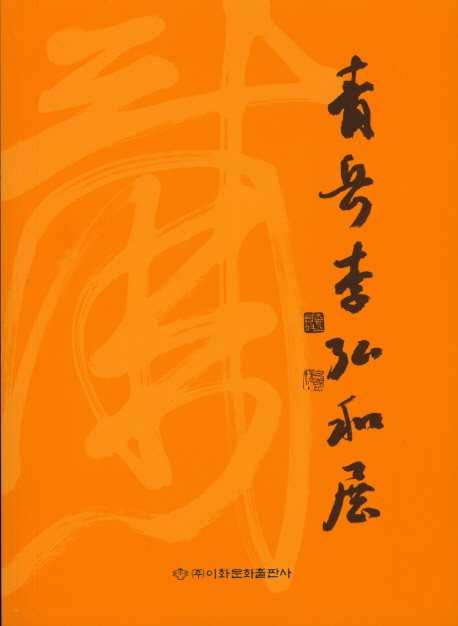 青岳李弘和展
㈜이화문화출판사